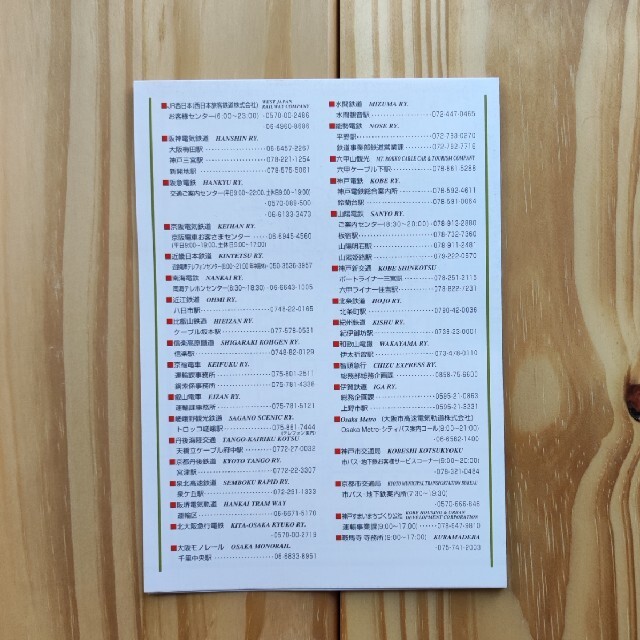 ■JR西日本(西日本旅客鉄道株式会社) WEST JAPAN RAILWAY COMPANY
お客様センター(6:00~23:00) ‥0570-00-2486
06-4960-8686
■阪神電気鉄道 HANSHIN RY.
大阪梅田駅 06-6457-2267
神戸三宮駅 078-221-1254
新開地駅 078-575-5061
■阪急電鉄 HANKYU RY.
交通ご案内センター(平日9:00~22:00、土休日9:00~19:00)
0570-089-500
06-6133-3473
■京阪電気鉄道 KEIHAN RY.
京阪電車お客さまセンター 06-6945-4560
(平日9:00~19:00、土休日9:00~17:00)
■近畿日本鉄道 KINTETSU RY.
050-3536-3957
■南海電鉄 NANKAI RY.
南海テレホンセンター(8:30~18:30) 06-6643-1005
■近江鉄道 OHMI RY.
八日市駅 0748-22-0165
■比叡山鉄道 HIEIZAN RY.
ケーブル坂本駅 077-578-0531
■信楽高原鐵道 SHIGARAKI KOHGEN RY.
信楽駅 0748-82-0129
■京福電車 KEIFUKU RY.
運輸課事務所 075-801-2511
鋼索係事務所 075-781-4338
■叡山電車 EIZAN RY.
運輸課事務所 075-781-5121
■嵯峨野観光鉄道 SAGANO SCENIC RY.
トロッコ嵯峨駅 075-861-7444
(テレフォン案内)
■丹後海陸交通 TANGO-KAIRIKU KOTSU
天橋立ケーブル府中駅 0772-27-0032
■京都丹後鉄道 KYOTO TANGO RY.
宮津駅 0772-22-3307
■泉北高速鉄道 SEMBOKU RAPID RY.
泉ケ丘駅 072-291-1393
■阪堺電気軌道 HANKAI TRAM WAY
運輸区 06-6671-5170
■北大阪急行電鉄 KITA-OSAKA KYUKO RY.
0570-00-2719
■大阪モノレール OSAKA MONORAIL.
千里中央駅 06-6833-8951
■水間鉄道 MIZUMA RY.
水間観音駅 072-447-0465
■能勢電鉄 NOSE RY.
平野駅 072-793-0270
鉄道事業部鉄道営業課 072-792-7716
■六甲山観光 MT. ROKKO CABLE CAR & TOURISM COMPANY
六甲ケーブル下駅 078-861-5288
■神戸電鉄 KOBE RY.
神戸電鉄総合案内所 078-592-4611
鈴蘭台駅 078-591-0042
■山陽電鉄 SANYO RY.
ご案内センター(8:30~20:00) 078-912-2880
板宿駅 078-732-7360
山陽明石駅 078-911-2481
山陽姫路駅 079-222-0570
■神戸新交通 KOBE SHINKOTSU
ポートライナー三宮駅 078-251-2115
六甲ライナー住吉駅 078-822-7231
■北条鉄道 HOJO RY.
北条町駅 0790-42-0036
■紀州鉄道 KISHU RY.
紀伊御坊駅 0738-23-0001
■和歌山電鐵 WAKAYAMA RY.
伊太祈曽駅 073-478-0110
■智頭急行 CHIZU EXPRESS RY.
総務部総務企画課 0858-75-6600
■伊賀鉄道 IGA RY.
総務企画課 0595-21-0863
上野市駅 0595-21-3231
■Osaka Metro (大阪市高速電気軌道株式会社)
Osaka Metro・シティバス案内コール(8:00~20:00)
06-6582-1400
■神戸市交通局 KOBESHI KOTSUKYOKU
市バス・地下鉄お客様サービスコーナー(8:00~20:00)
078-321-0484
■京都市交通局 KYOTO MUNICIPAL TRANSPORTATION BUREAU
市バス・地下鉄案内所(7:30~19:30)
0570-666-846
■神戸すまいまちづくり公社 KOBE HOUSING & URBAN DEVELOPMENT CORPORATION
運輸事業課(9:00~17:00) 078-647-9810
■鞍馬寺 寺務所(9:00~17:00) KURAMADERA
075-741-2003